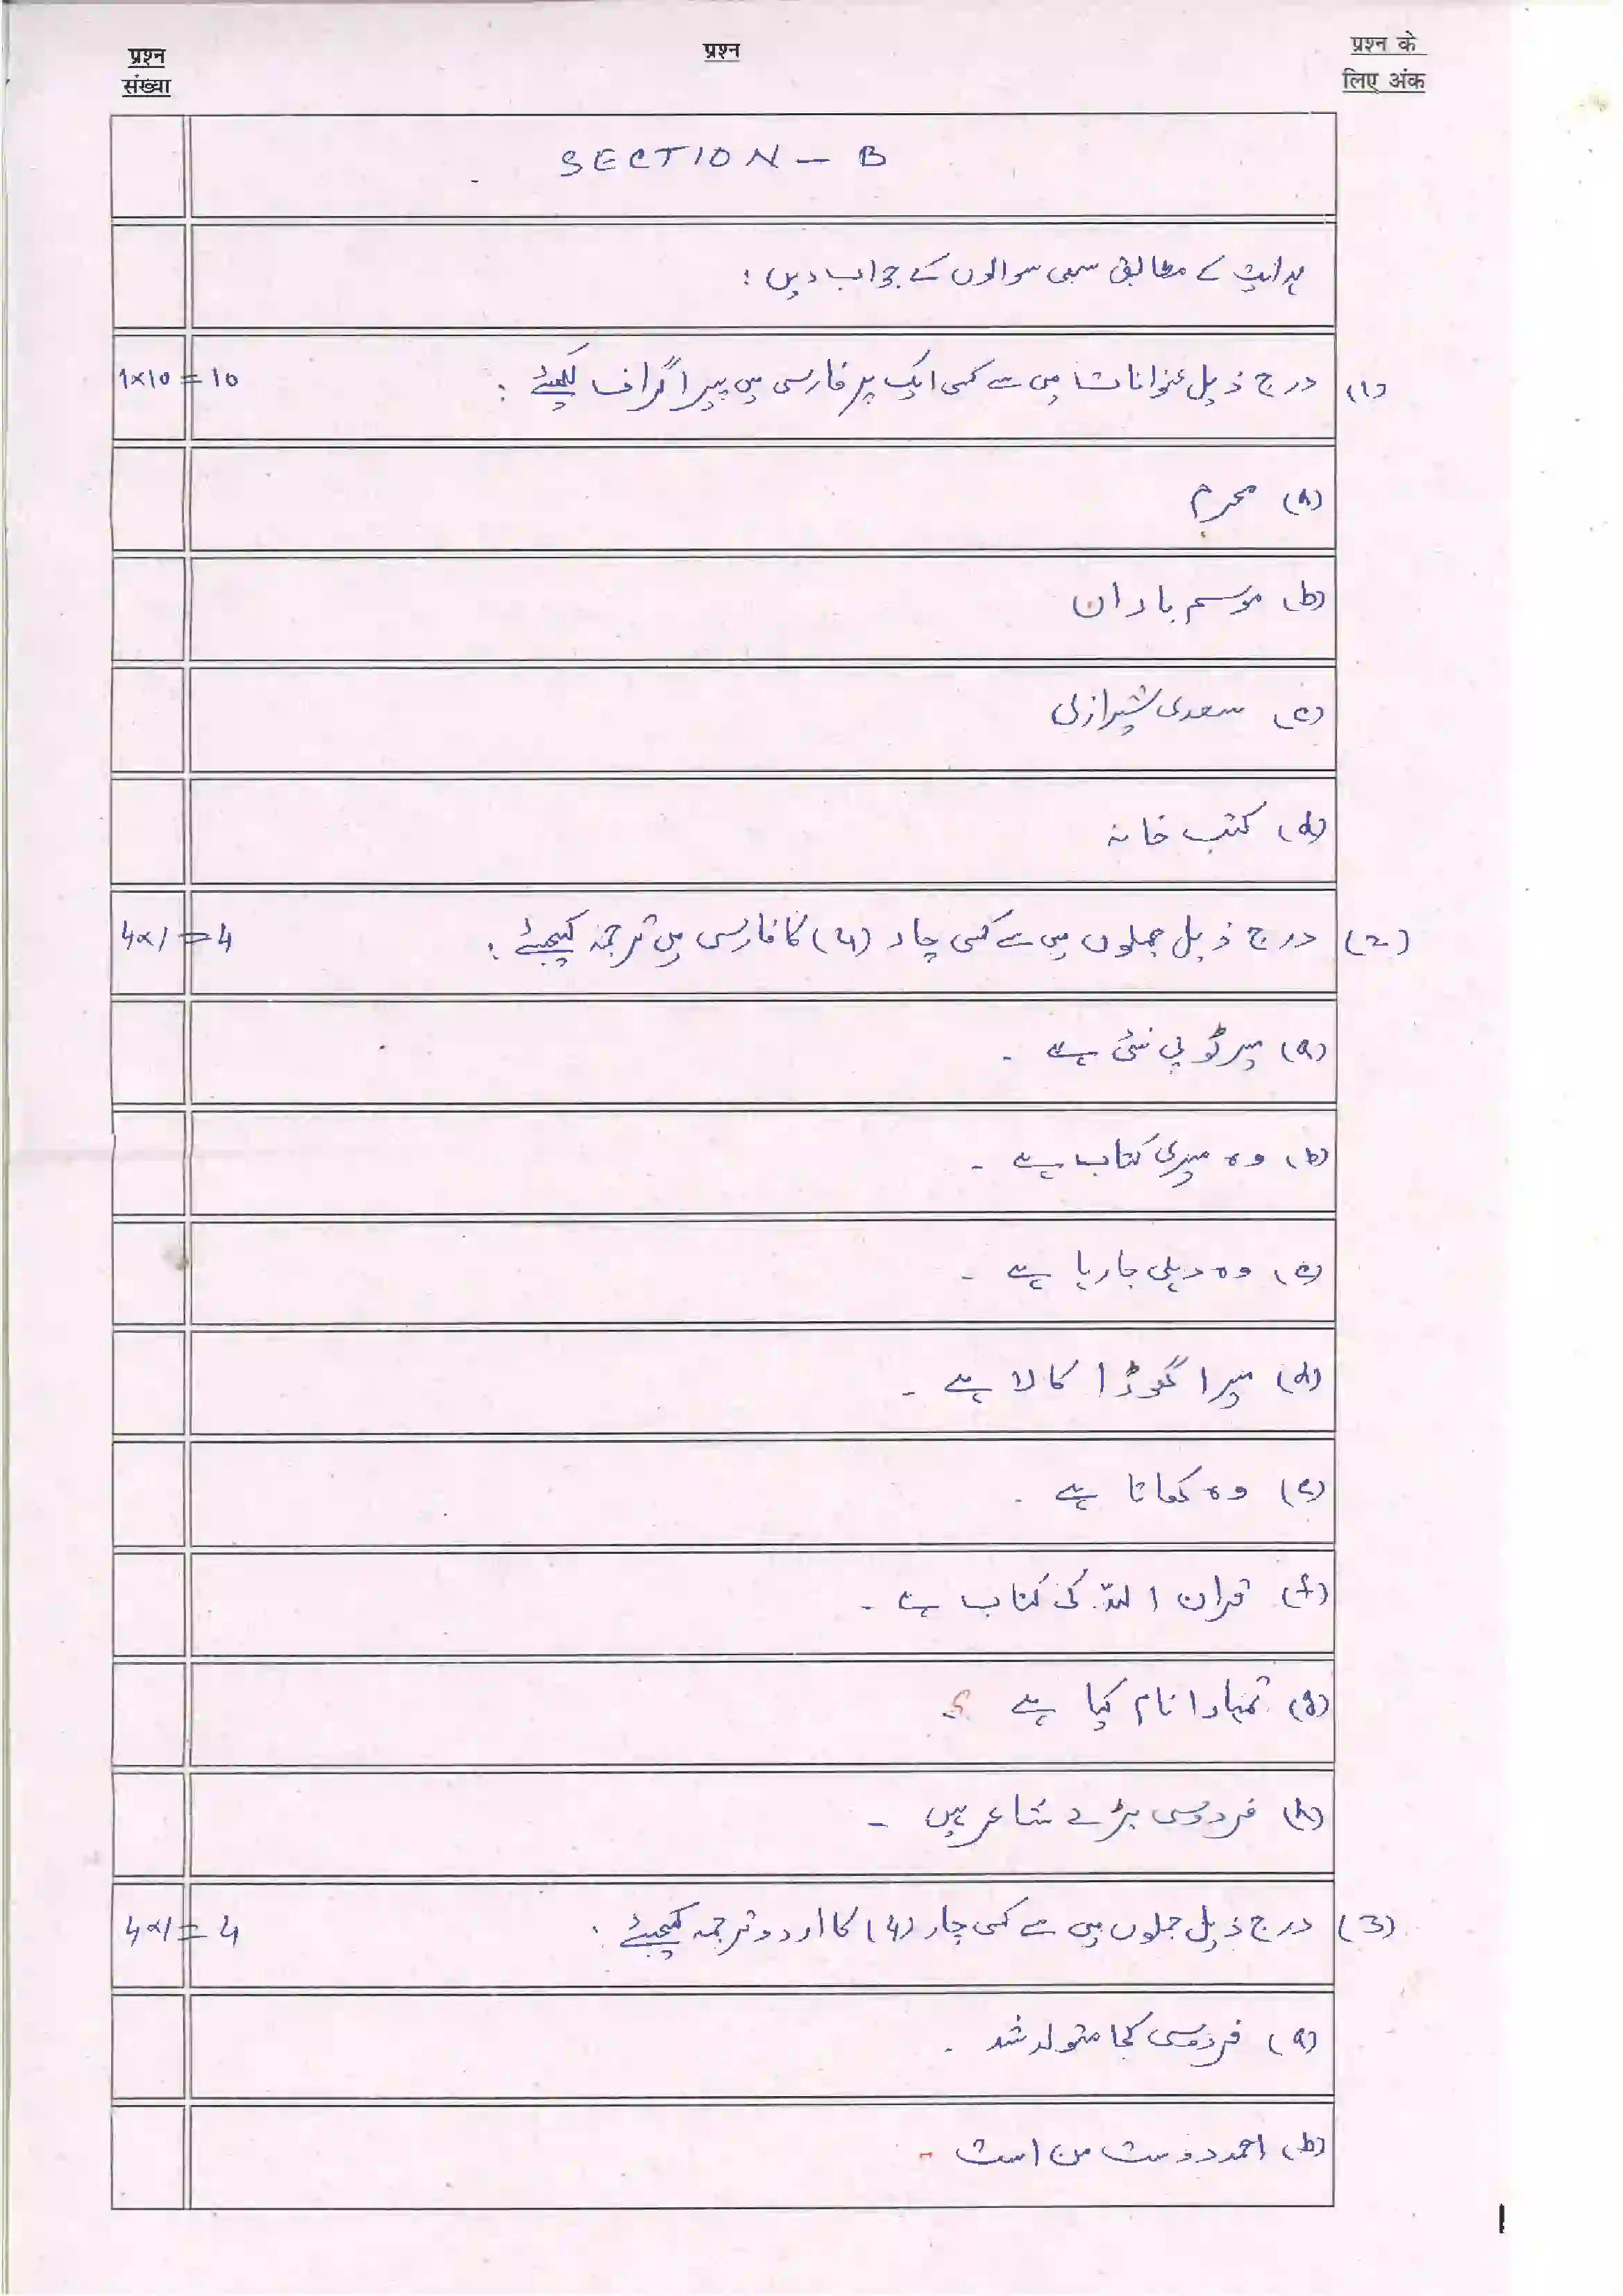 प्रश्न संख्या
प्रश्न
प्रश्न के लिए अंक
SECTION - B
ہدایت کے مطابق سبھی سوالوں کے جواب دیں :
(1) درج ذیل عنوانات میں سے کسی ایک پر فارسی میں پیراگراف لکھیئے : 1x10 = 10
(a) محرم
(b) موسم باران
(c) سعدی شیرازی
(d) کتب خانہ
(2) درج ذیل جملوں میں سے کسی چار (4) کا فارسی میں ترجمہ کیجیئے : 4x1 = 4
(a) میر ٹوپی نئی ہے ۔
(b) وہ میری کتاب ہے ۔
(c) وہ دہلی جا رہا ہے ۔
(d) میرا گوڑا کالا ہے ۔
(e) وہ کھاتا ہے ۔
(f) قران اللہ کی کتاب ہے ۔
(g) تمہارا نام کیا ہے ؟
(h) فردوسی بڑے شاعر ہیں ۔
(3) درج ذیل جملوں میں سے کسی چار (4) کا اردو ترجمہ کیجیئے : 4x1 = 4
(a) فردوسی کجا متولد شد ۔
(b) احمد دوست من است ۔